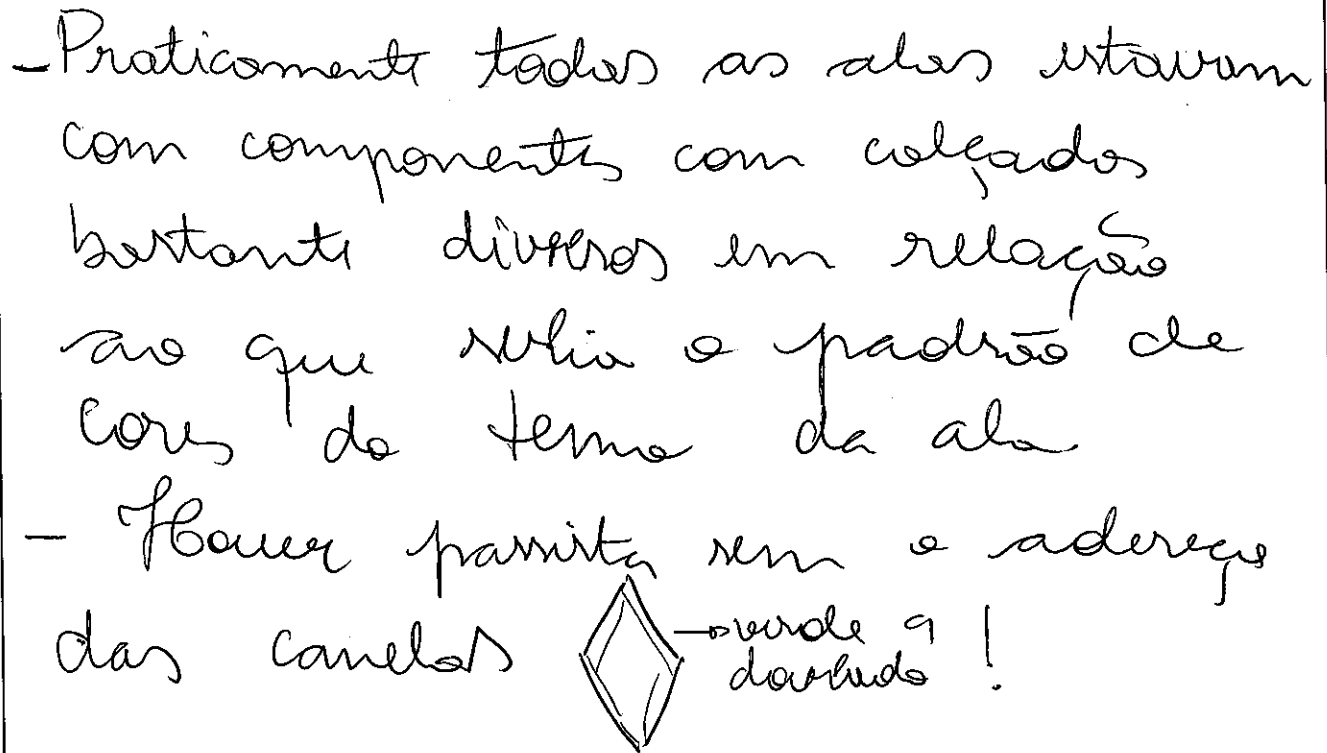 - Praticamente todas as alas estavam
com componentes com calçados
bastante diversos em relação
ao que seria o padrão de
cores do tema da ala
- Houve passista sem o adereço
das canelas → verde
dourado !